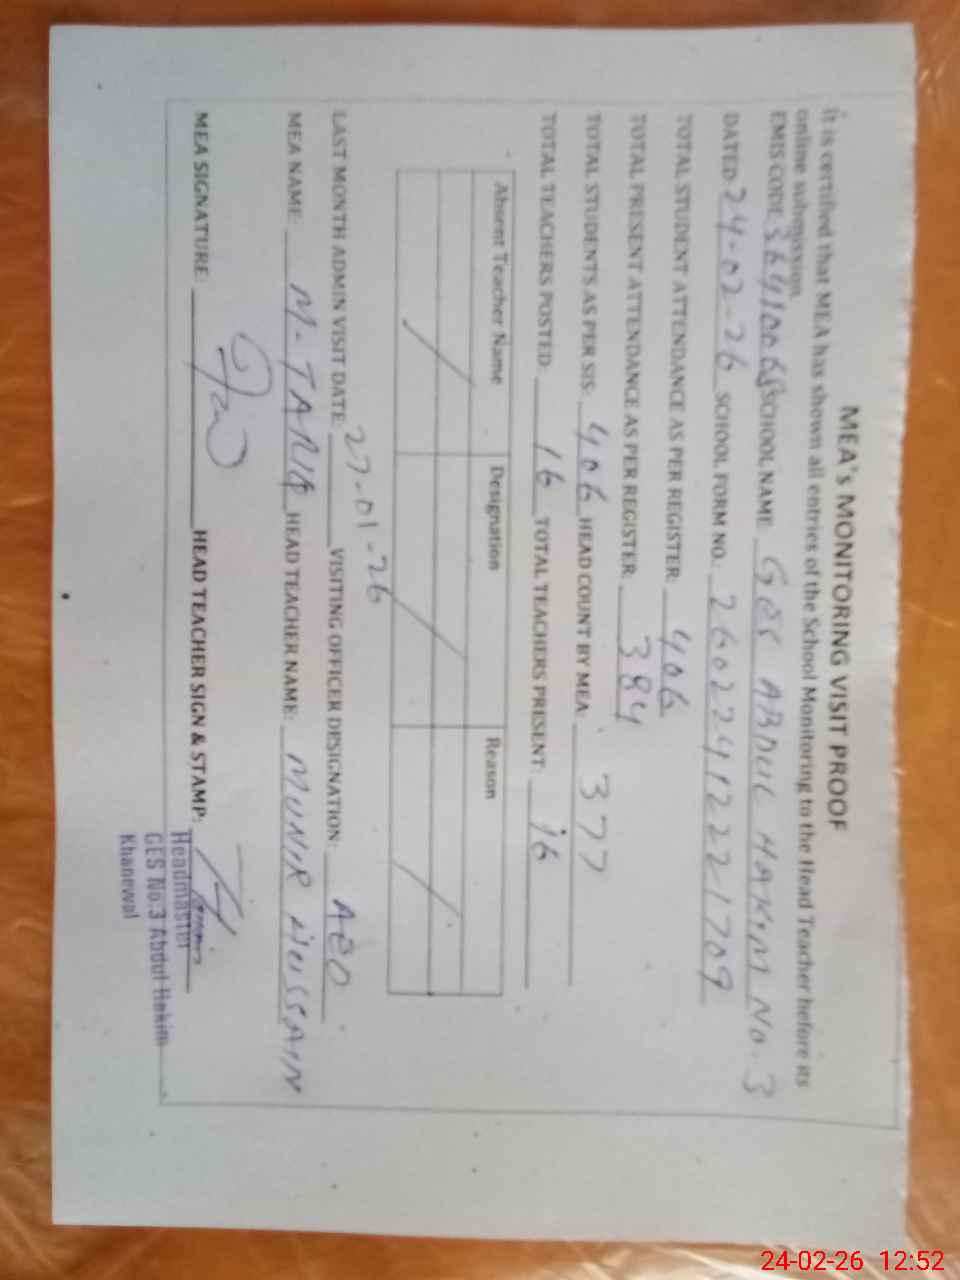 MEA's MONITORING VISIT PROOF
it is certified that MEA has shown all entries of the School Monitoring to the Head Teacher before its
online submission.
EMIS CODE SCHOOL NAME GES ABDUL HAKIM No. 3
DATED 24-02-26 SCHOOL FORM NO.: 26022412221709
TOTAL STUDENT ATTENDANCE AS PER REGISTER: 406
TOTAL PRESENT ATTENDANCE AS PER REGISTER: 384
TOTAL STUDENTS AS PER SIS: 406 HEAD COUNT BY MEA: 377
TOTAL TEACHERS POSTED: 16 TOTAL TEACHERS PRESENT: 16
Absent Teacher Name Designation Reason
LAST MONTH ADMIN VISIT DATE: 27-01-26 VISITING OFFICER DESIGNATION: AEO
MEA NAME: M-TARIQ HEAD TEACHER NAME: MUNIR HUSSAIN
MEA SIGNATURE: HEAD TEACHER SIGN & STAMP:
Headmaster
GES No:3 Abdul Hakim
Khanewal
24-02-26 12:52